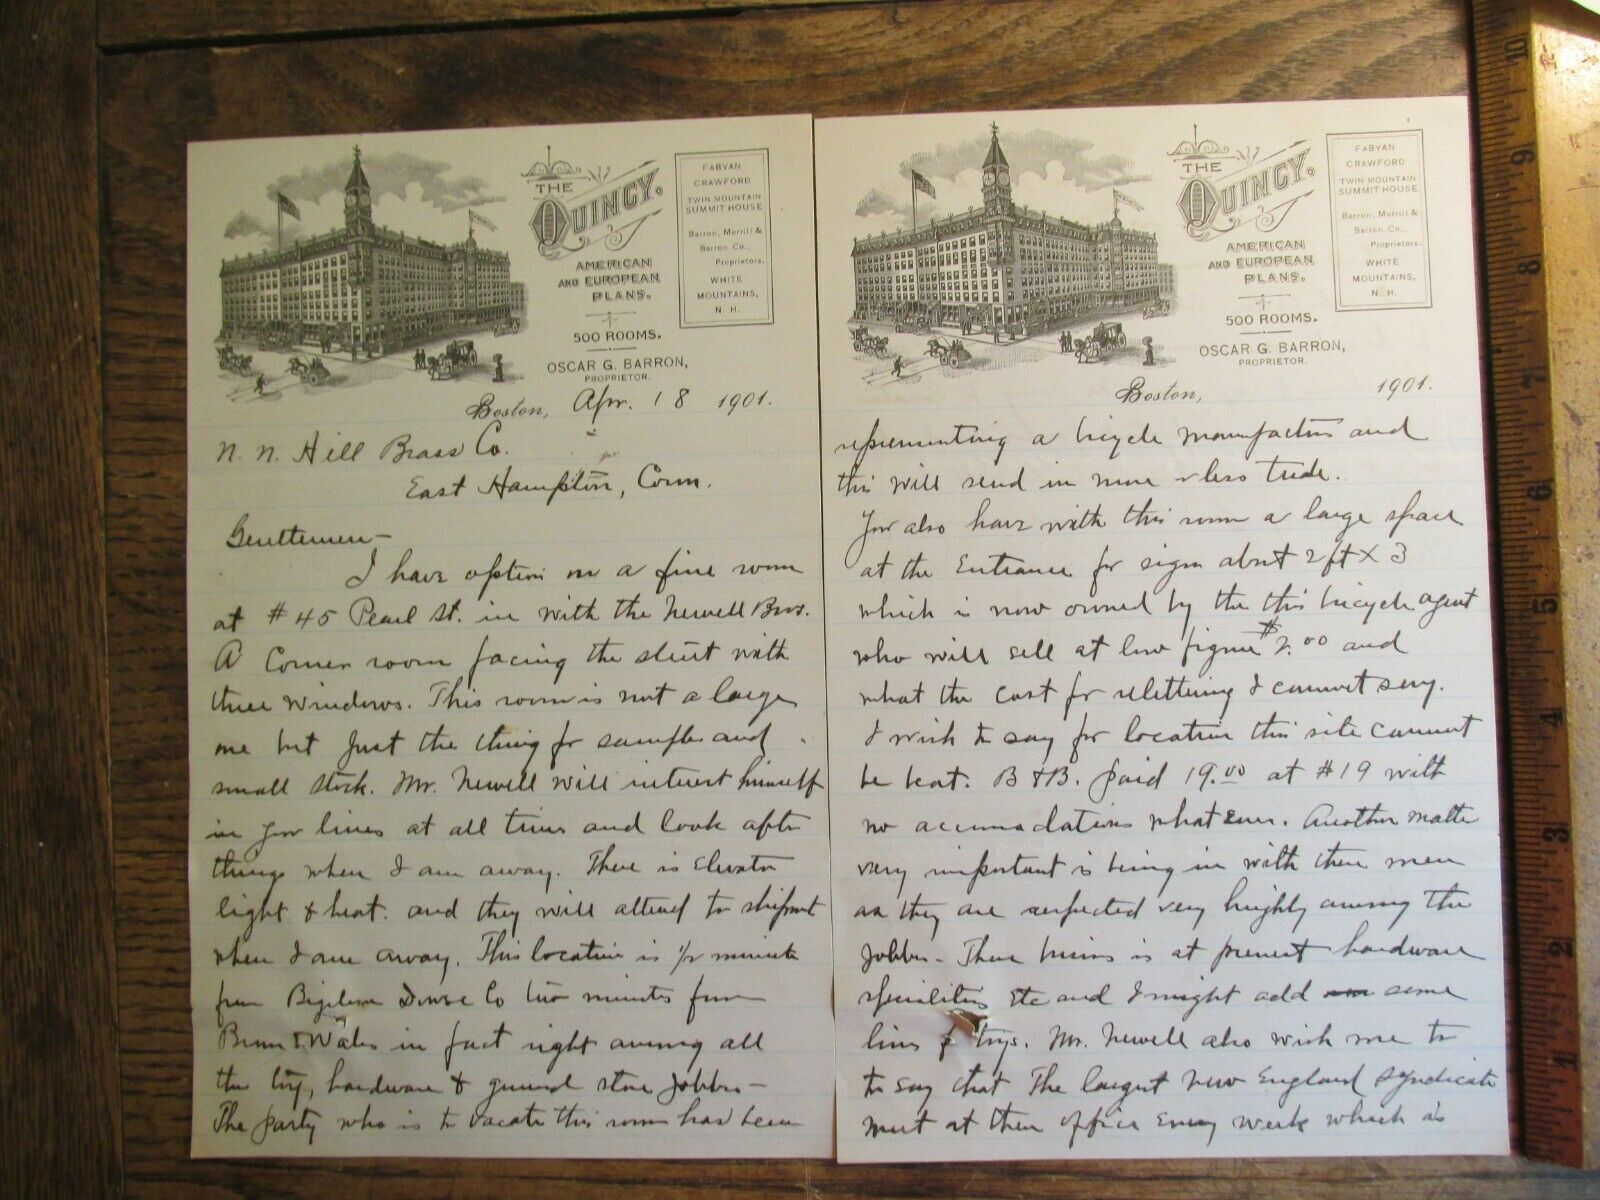 THE
QUINCY.
AMERICAN
AND EUROPEAN
PLANS.
500 ROOMS.
OSCAR G. BARRON,
PROPRIETOR.
FABYAN
CRAWFORD
TWIN MOUNTAIN
SUMMIT HOUSE
Barron, Merrill &
Barron Co.,
Proprietors.
WHITE
MOUNTAINS,
N. H.
Boston, Apr. 18 1901.
N. N. Hill Brass Co.
East Hampton, Conn.
Gentlemen—
I have option on a fine room
at #45 Pearl St. in with the Newell Bros.
A Corner room facing the street with
three windows. This room is not a large
one but just the thing for samples and
small stock. Mr. Newell will interest himself
in your lines at all times and look after
things when I am away. There is Elevator
light & heat. and they will attend to shipment
when I am away. This location is 1/2 minute
from Bigelow Dowse Co two minutes from
in fact right among all
the toy, hardware & general store jobbers—
The party who is to vacate this room has been
THE
QUINCY.
AMERICAN
AND EUROPEAN
PLANS.
500 ROOMS.
OSCAR G. BARRON,
PROPRIETOR.
FABYAN
CRAWFORD
TWIN MOUNTAIN
SUMMIT HOUSE
Barron, Merrill &
Barron Co.,
Proprietors.
WHITE
MOUNTAINS,
N. H.
Boston, 1901.
representing a bicycle manufacture and
this will send in more or less trade.
You also have with this room a large space
at the Entrance for sign about 2 ft x 3
which is now owned by the this bicycle agent
who will sell at low figure $2.00 and
what the cost for relettering I cannot say.
I wish to say for location this site cannot
be beat. B & B. paid 19.00 at #19 with
no accomodations what Ever. Another matter
very important is being in with these men
as they are respected very highly among the
jobbers— There business is at present hardware
specialities Etc and I might add some
lines of toys. Mr. Newell also wish me to
to say that The largest New England Syndicate
meet at their office Every week which is
10
9
8
7
6
5
4
3
2
1